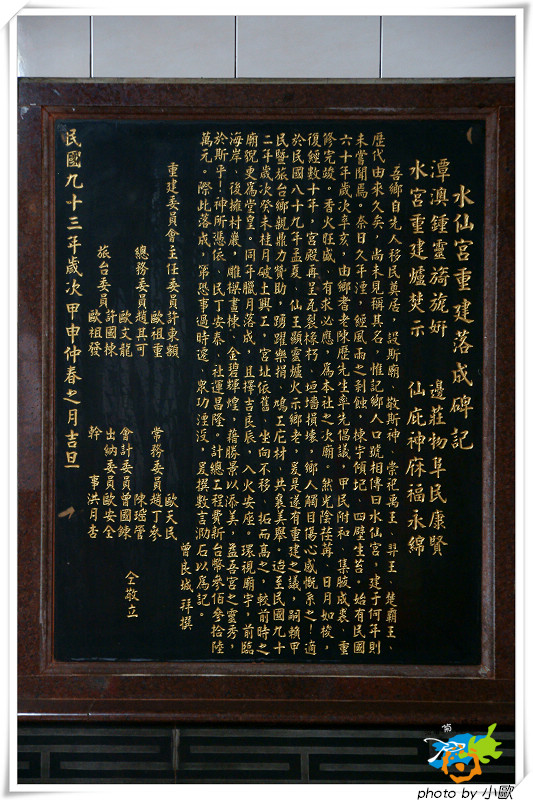 水仙宮重建落成碑記
潭澳鍾靈旖旎妍　邊莊物阜民康賢
水宮重建爐焚示　仙庇神庥福永綿
吾鄉自先人移民奠居、設斯廟、敬斯神、崇祀禹王、羿王、楚霸王、
歷代由來久矣，尚未見稱其名，惟記鄉人口號相傳曰水仙宮，建于何年則
未嘗聞焉。奈日久年湮，經風雨之剝蝕，棟宇傾圮、四壁生苔。始有民國
六十年歲次辛亥，由鄉耆老陳歷先生率先倡議，甲民附和、集腋成裘、重
修完竣。香火旺盛、有求必應，為本社之次廟。然光陰荏苒、日月如梭，
復經數十年，宮殿再呈瓦裂椽朽、垣墻損壞，鄉人觸目傷心感慨系之！適
於民國八十九年孟夏、仙王顯靈爐火示鄉老，爰是遂有重建之議，嗣賴甲
民暨旅台鄉親鼎力贊助、踴躍樂捐、鳩工庀材、共襄美舉。迨至民國九十
二年歲次癸未桂月破土興工，宮址依舊、坐向不移、拓而高之，較前時之
廟貌更為堂皇。同年臘月落成，且擇吉良辰、入火安座。環視廟宇，前臨
海岸、後擁村嚴，雕樑畫棟、金碧輝煌，藉勝景以添美，益吾宮之靈秀，
於斯乎！神所憑依、民丁安泰、社運昌隆。計總工程費新台幣參佰參拾陸
萬元。際此落成，第恐事過時遷、眾功湮沒，爰撰數言泐石以為記。
曾良城拜撰
重建委員會主任委員許東額　歐天民
歐祖重　常務委員趙丁參
總務委員趙其可　陳瑤營
歐文龍　會計委員曾國鍊
許國棟　出納委員歐安全
旅台委員歐祖發　幹　事洪月杏
仝敬立
民國九十三年歲次甲申仲春之月吉旦
菊
photo by 小歐